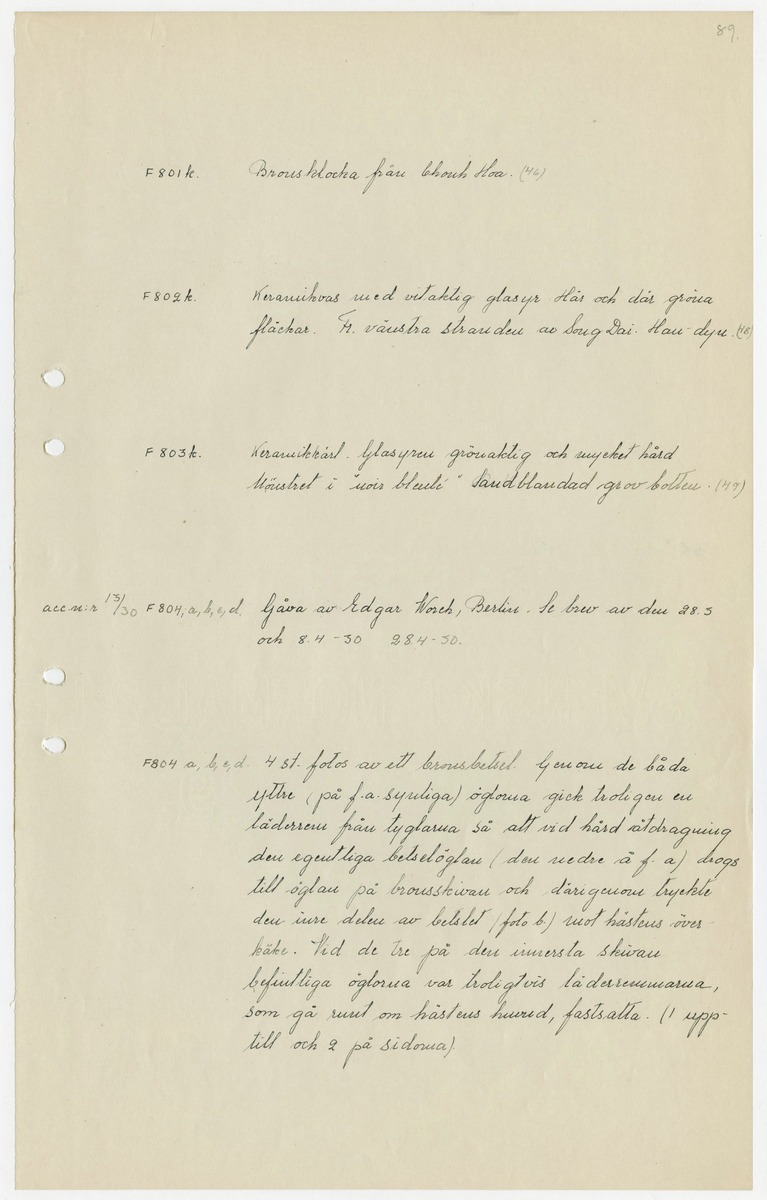 89.
F801k. Bronsklocka från Chonh Hoa. (46)
F802k. Keramikvas med vitaktig glasyr Här och där gröna
fläckar. Fr. vänstra stranden av Song Dai. Han-dyn. (48)
F803k. Keramikkärl. Glasyren grönaktig och mycket hård
Mönstret i "noir bleuté" Sandblandad grov botten. (49)
acc n:r 13/30 F804, a, b, c, d. Gåva av Edgar Worch, Berlin. Se brev av den 28.3
och 8.4-30 28.4-30.
F804 a, b, c, d. 4 st. fotos av ett bronsbetsel. Genom de båda
yttre (på f.a. synliga) öglorna gick troligen en
läderrem från tyglarna så att vid hård åtdragning
den egentliga betselöglan (den nedre å f. a) drogs
till öglan på bronsskivan och därigenom tryckte
den inre delen av betslet (foto b.) mot hästens över-
käke. Vid de tre på den innersta skivan
befintliga öglorna var troligtvis läderremmarna,
som gå runt om hästens huvud, fastsatta. (1 upp-
till och 2 på sidorna).